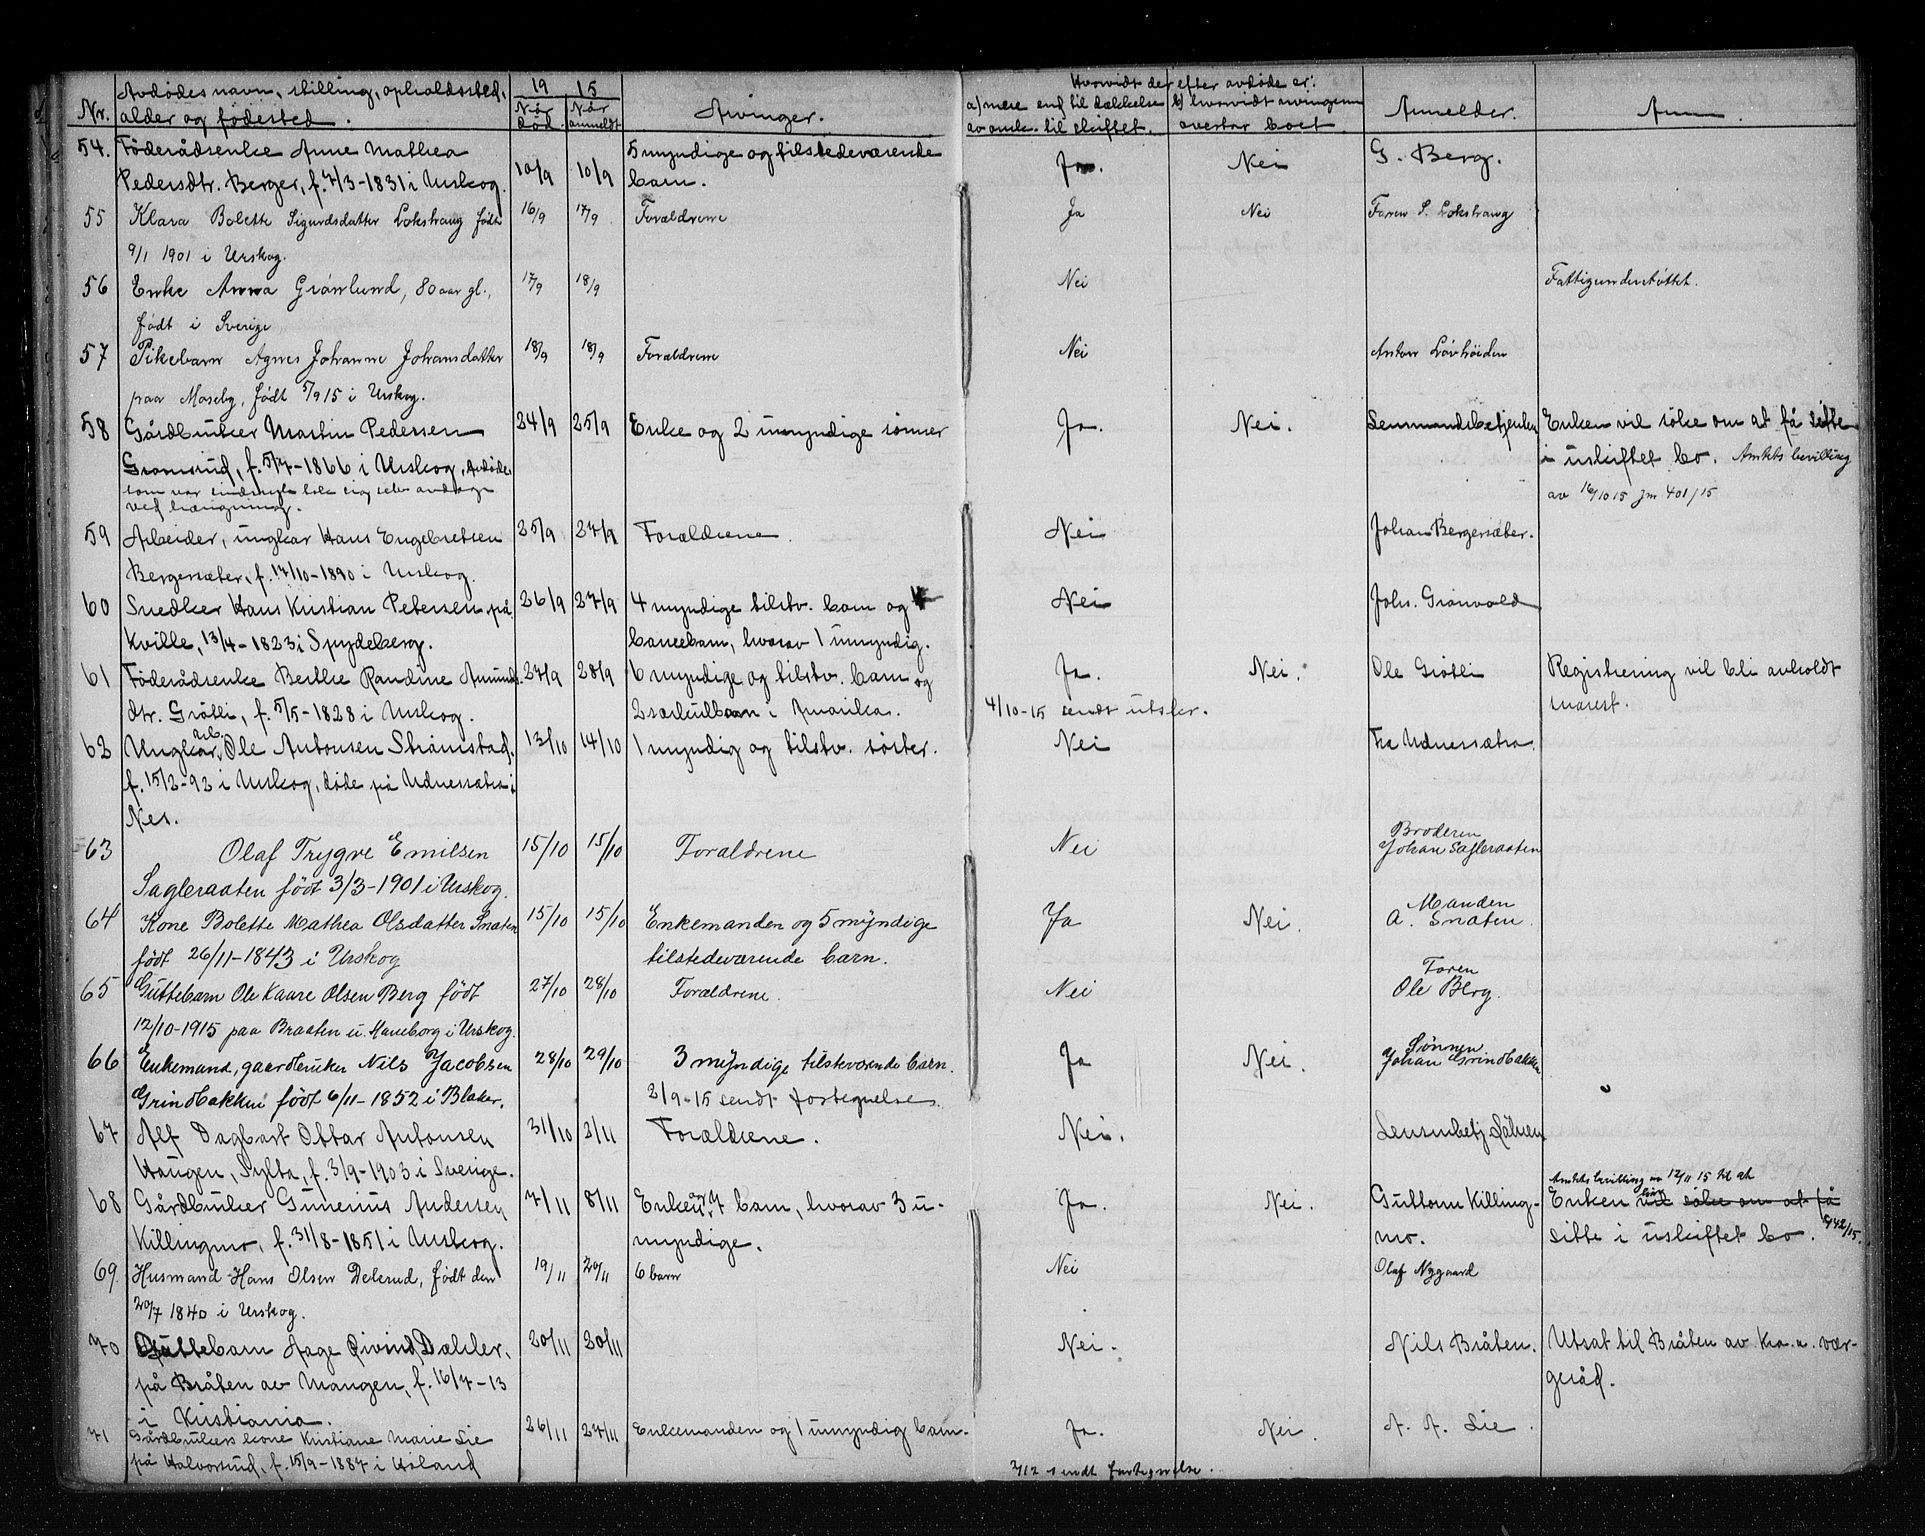 Avdødes navn, stilling, opholdssted, 19 15 Hvorvidt der efter avdøde er:
Nr. alder og fødested. Når død. Når anmeldt Arvinger. a) mere end til dækkelse av omk. til skiftet. b) hvorvidt arvingerne overtar boet Anmelder. Anm.
54. Föderådsenke Anne Mathea 10/9 10/9 5 myndige og tilstedeværende Ja. Nei G. Berg.
Pedersdtr. Berger, f. 7/3-1831 i Urskog. barn.
55 Klara Bolette Sigurdsdatter Lokshaug født 16/9 17/9 Forældrene Ja Nei Farren S. Lokshaug
9/1 1901 i Urskog.
56 Enke Anna Grønlund, 80 aar gl., 17/9 18/9 Nei Fattigunderstøttet.
født i Sverige
57 Pikebarn Agnes Johanne Johansdatter 18/9 18/9 Forældrene Nei Anton Løvhöiden
paa Moseby, født 5/9 15 i Urskog.
58 Gårdbruker Martin Pedersen 24/9 25/9 Enke og 2 umyndige sønner Ja. Nei. Lensmandsbetjenten Enken vil söke om at få sitte
f. 5/7-1866 i Urskog. Avdøde i uskiftet bo. Amtets bevilling
som var sindssyk tok sig selv avdage av 16/10 15 jn 401/15
ved hængning.
59 Arbeider, ungkar Hans Engebretsen 25/9 27/9 Forældrene. Nei Johan Bergersæter.
Bergersæter, f. 17/10-1890 i Urskog.
60 Snedker Hans Kristian Petersen på 26/9 27/9 4 myndige tilstv. barn og Nei Johs. Grönvold
Kville, 13/4-1823 i Spydeberg. barnebarn, hvorav 1 umyndig.
61 Föderådsenke Berthe Randine Amunds 27/9 28/9 6 myndige og tilstv. barn og Ja. Nei. Ole Grötli Registrering vil bli avholdt
dtr. Grötli, f. 5/5-1828 i Urskog. 2 særkulbarn i Amerika. 4/10-15 sendt utskr. snarest.
62 Ungkar, arb. Ole Antonsen Strömstad. 13/10 14/10 1 myndig og tilstv. söster. Nei Fra Udnessætra.
f. 15/2-92 i Urskog, døde på Udnessætra i
Nes.
63 Olaf Trygve Emilsen 15/10 15/10 Forældrene Nei Broderen Johan Sagleraaten
Sagleraaten født 3/3-1901 i Urskog.
64 Kone Bolette Mathea Olsdatter Snaten 15/10 15/10 Enkemanden og 5 myndige Ja Nei. Manden A. Snaten.
født 26/11-1843 i Urskog tilstedeværende barn.
65 Guttebarn Ole Kaare Olsen Berg født 27/10 28/10 Forældrene. Nei Faren Ole Berg.
12/10-1915 paa Braaten u. Haneborg i Urskog.
66 Enkemand, gaardbruker Nils Jacobsen 28/10 29/10 3 myndige tilstværende barn. Ja Nei. Sønnen Johan Grindbakken
Grindbakken født 6/11-1852 i Blaker. 2/9-15 sendt fortegnelse.
67 Alf Dagbart Ottar Antonsen 31/10 2/11 Forældrene. Nei.
Haugen, Sylta, f. 3/9-1903 i Sverige.
Amtets bevilling av 12/11 15 til at
68 Gårdbruker Gunerius Andersen 7/11 8/11 Enken og 7 barn, hvorav 3 u- Ja. Nei. Guttorm Killing- Enken vil söke om at få
Killingmo, f. 31/8-1851 i Urskog. myndige. mo. sitte i uskiftet bo. 442/15.
69 Husmand Hans Olsen Delerud, født den 19/11 20/11 6 barn Nei Olaf Nygaard
20/7 1840 i Urskog.
70 Guttebarn Aage Øivind Dæhler, 20/11 20/11 Nei. Nils Bråten. Utsat til Bråten av Kra. v. vær-
på Bråten av Mangen, f. 16/7-13 geråd.
i Kristiania.
71 Gårdbrukers kone Kristiane Marie Lie 26/11 27/11 Enkemanden og 1 umyndig barn. Ja. Nei. A. A. Lie.
på Halvorsrud, f. 15/9-1887 i Höland 2/12 sendt fortegnelse.